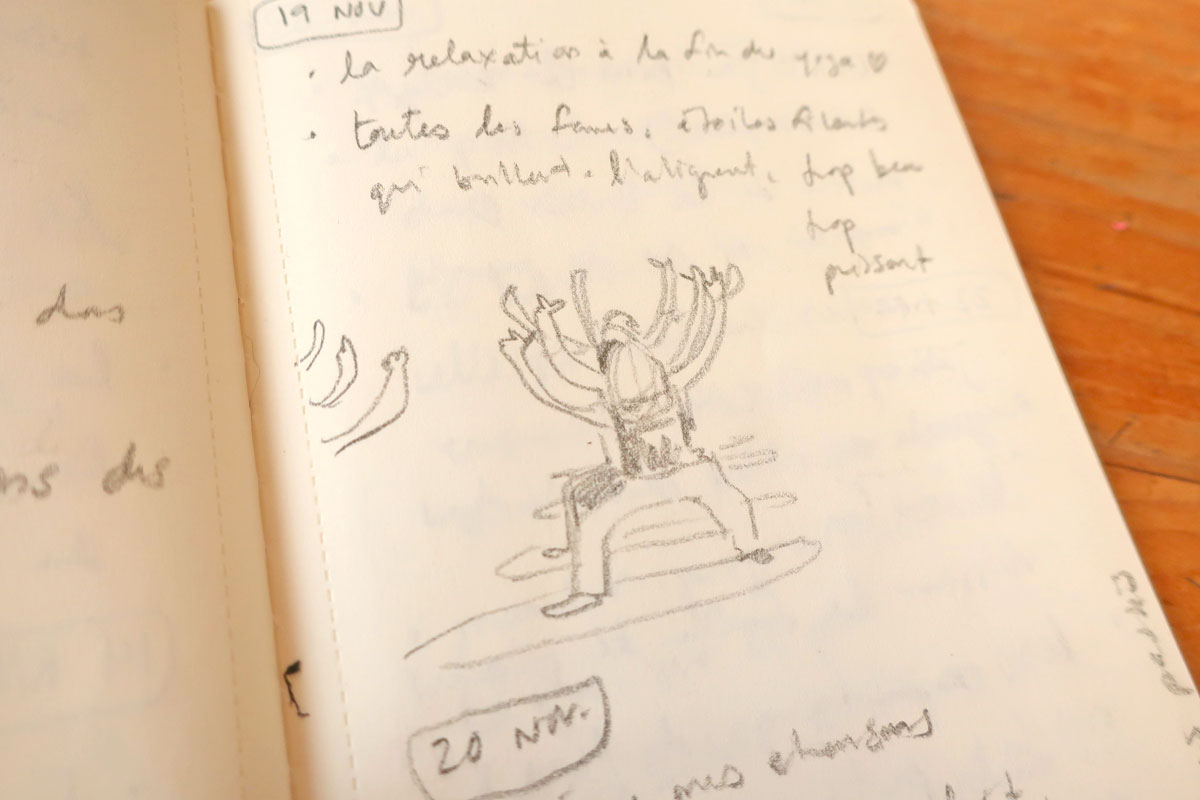 das
ns des
19 NOV
• la relaxation à la fin du yoga ♡
• toutes les fames, étoiles filantes
qui brillent. s'alignent. trop beau
trop
puissant
20 NOV.
mes chansons